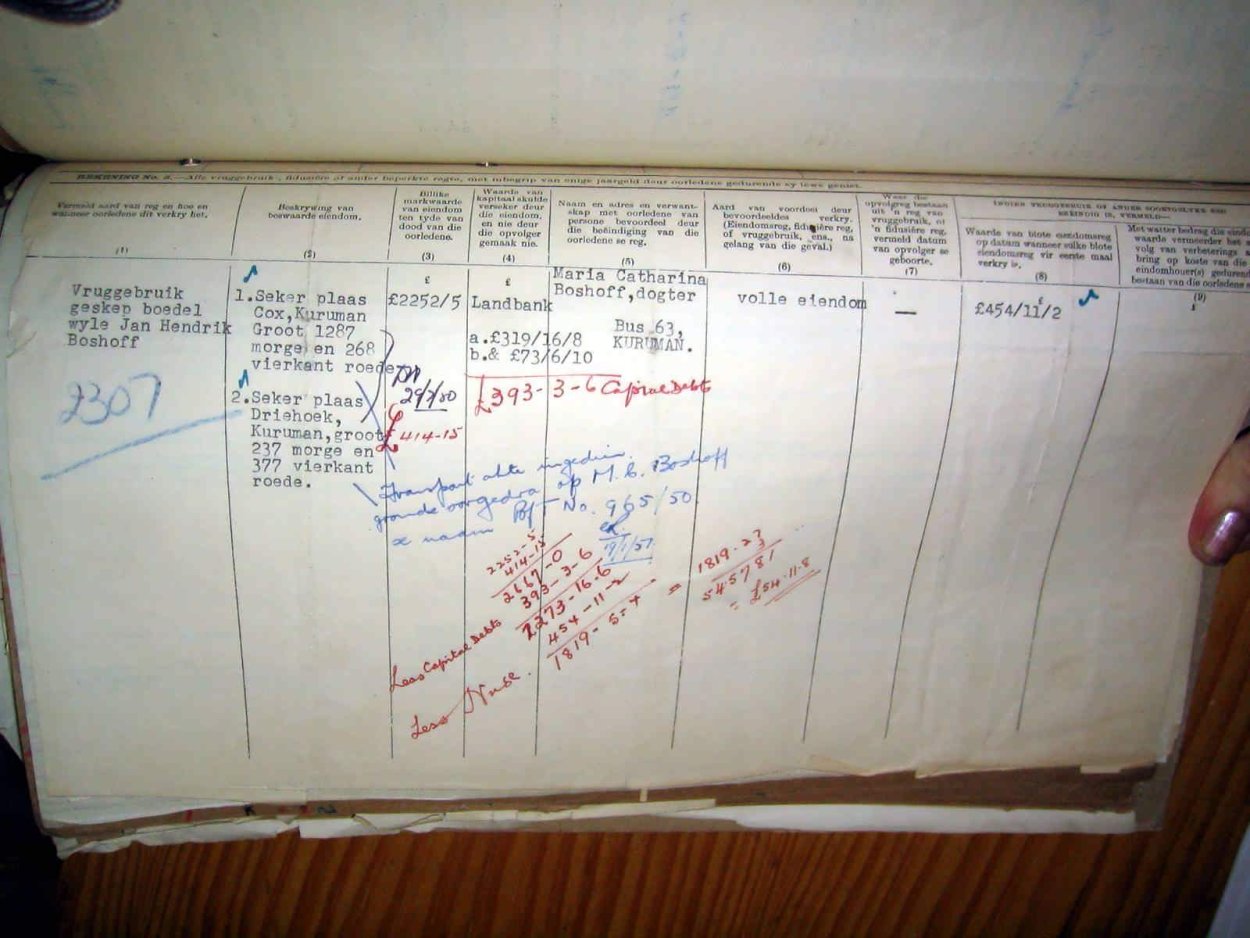 REKENING No. 3.—Alle vruggebruik-, fidusiêre of ander beperkte regte, met inbegrip van enige jaargeld deur oorledene gedurende sy lewe geniet.
Vermeld aard van reg en hoe en
wanneer oorledene dit verkry het.
(1)
Beskrywing van
bewaarde eiendom.
(2)
Billike
markwaarde
van eiendom
ten tyde van
dood van die
oorledene.
(3)
Waarde van
kapitaal skulde
verseker deur
die eiendom,
en nie deur
die opvolger
gemaak nie.
(4)
Naam en adres en verwant-
skap met oorledene van
persone bevoordeel deur
die beëindiging van die
oorledene se reg.
(5)
Aard van voordeel deur
bevoordeeldes verkry.
(Eiendomsreg, fidusiêre reg,
of vruggebruik, ens., na
gelang van die geval.)
(6)
Waar die
opvolgreg bestaan
uit 'n reg van
vruggebruik, of
'n fidusiêre reg,
vermeld datum
van opvolger se
geboorte.
(7)
Waarde van blote eiendomsreg
op datum wanneer sulke blote
eiendomsreg vir eerste maal
verkry is.
(8)
Met watter bedrag die eiend
waarde vermeerder het
volg van verbeterings
bring op koste van die
eiendomhouer(s) gedure
bestaan van die oorledene
(9)
Vruggebruik
geskep boedel
wyle Jan Hendrik
Boshoff
2307
1. Seker plaas
Cox, Kuruman
Groot 1287
morge en 268
vierkant roede
2. Seker plaas
Driehoek,
Kuruman, groot
237 morge en
377 vierkant
roede.
£
£2252/5
£414-15
£
Landbank
a. £319/16/8
b. & £73/6/10
£393-3-6 Capital Debts
Maria Catharina
Boshoff, dogter
Bus 63,
KURUMAN.
volle eiendom
—
£
£454/11/2
Transport akte
grond oorgedra op M. C. Boshoff
se naam No. 965/50
2252-5
414-15
2667-0
Less Capital Debts 393-3-6
2273-16-6
Less 454-11-2
1819-5-4
= 1819.27
3
545781
= £54.11.8